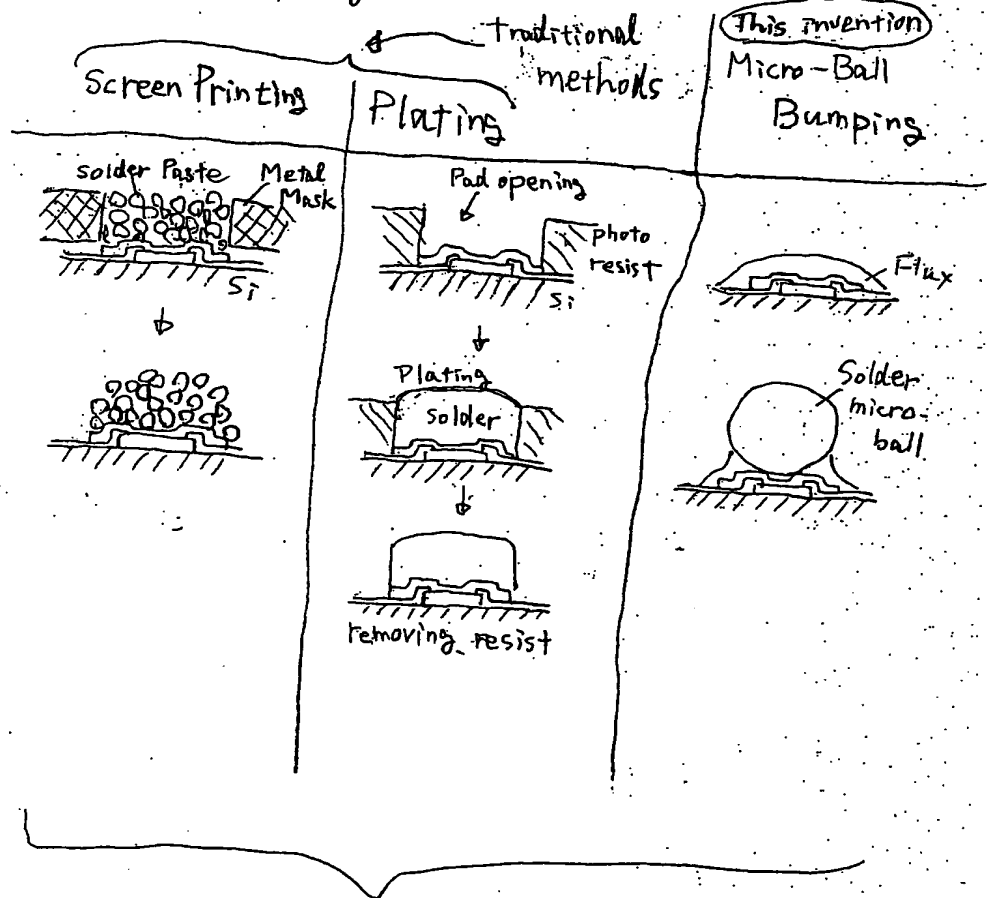 Traditional
methods
This invention
Screen Printing
Plating
Micro-Ball
Bumping
solder Paste
Metal
Mask
Si
Pad opening
photo
resist
Si
Plating
solder
removing resist
Flux
Solder
micro-
ball